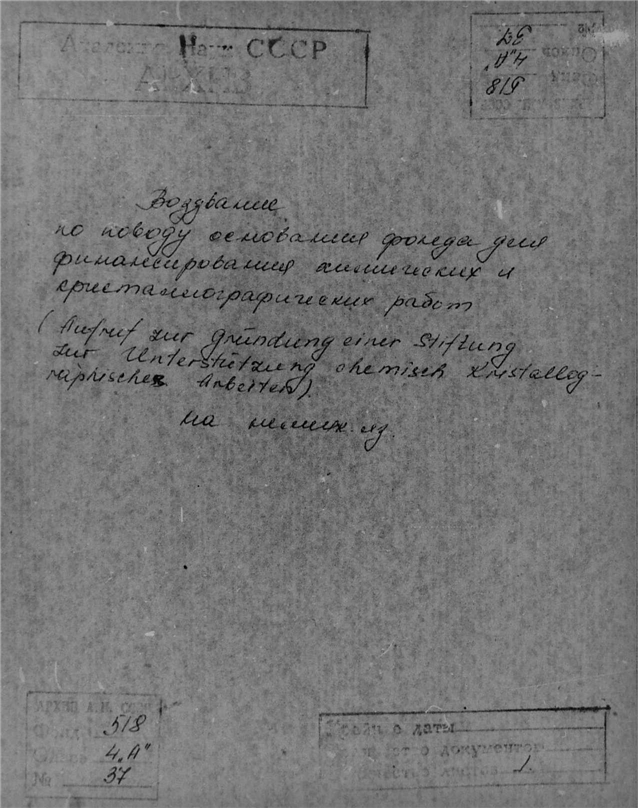 Академия Наук СССР
АРХИВ
518
4 „А"
37
Воззвание
по поводу основания фонда для
финансирования химических и
кристаллографических работ
(Aufruf zur Gründung einer Stiftung
zur Unterstützung chemisch Kristallog-
raphischer Arbeiten).
на немецк. яз.
АРХИВ А.Н. СССР
Фонд 518
Опись 4 „А"
№ 37
Крайние даты
документов
листов 1